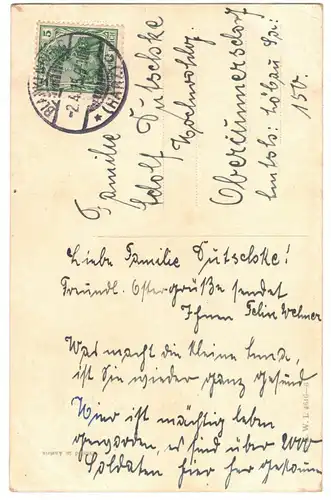 Familie
Adolf Dutschke
Obercunnersdorf
Amtsh: Löbau Sa:
150.
Liebe Familie Dutschke!
Freundl. Ostergrüße sendet
Ihnen
Was macht die kleine
ist Sie wieder ganz gesund
Hier ist mächtig leben
geworden, es sind über 2000
Soldaten hier her gekommen
5
(HARZ)
W. L.